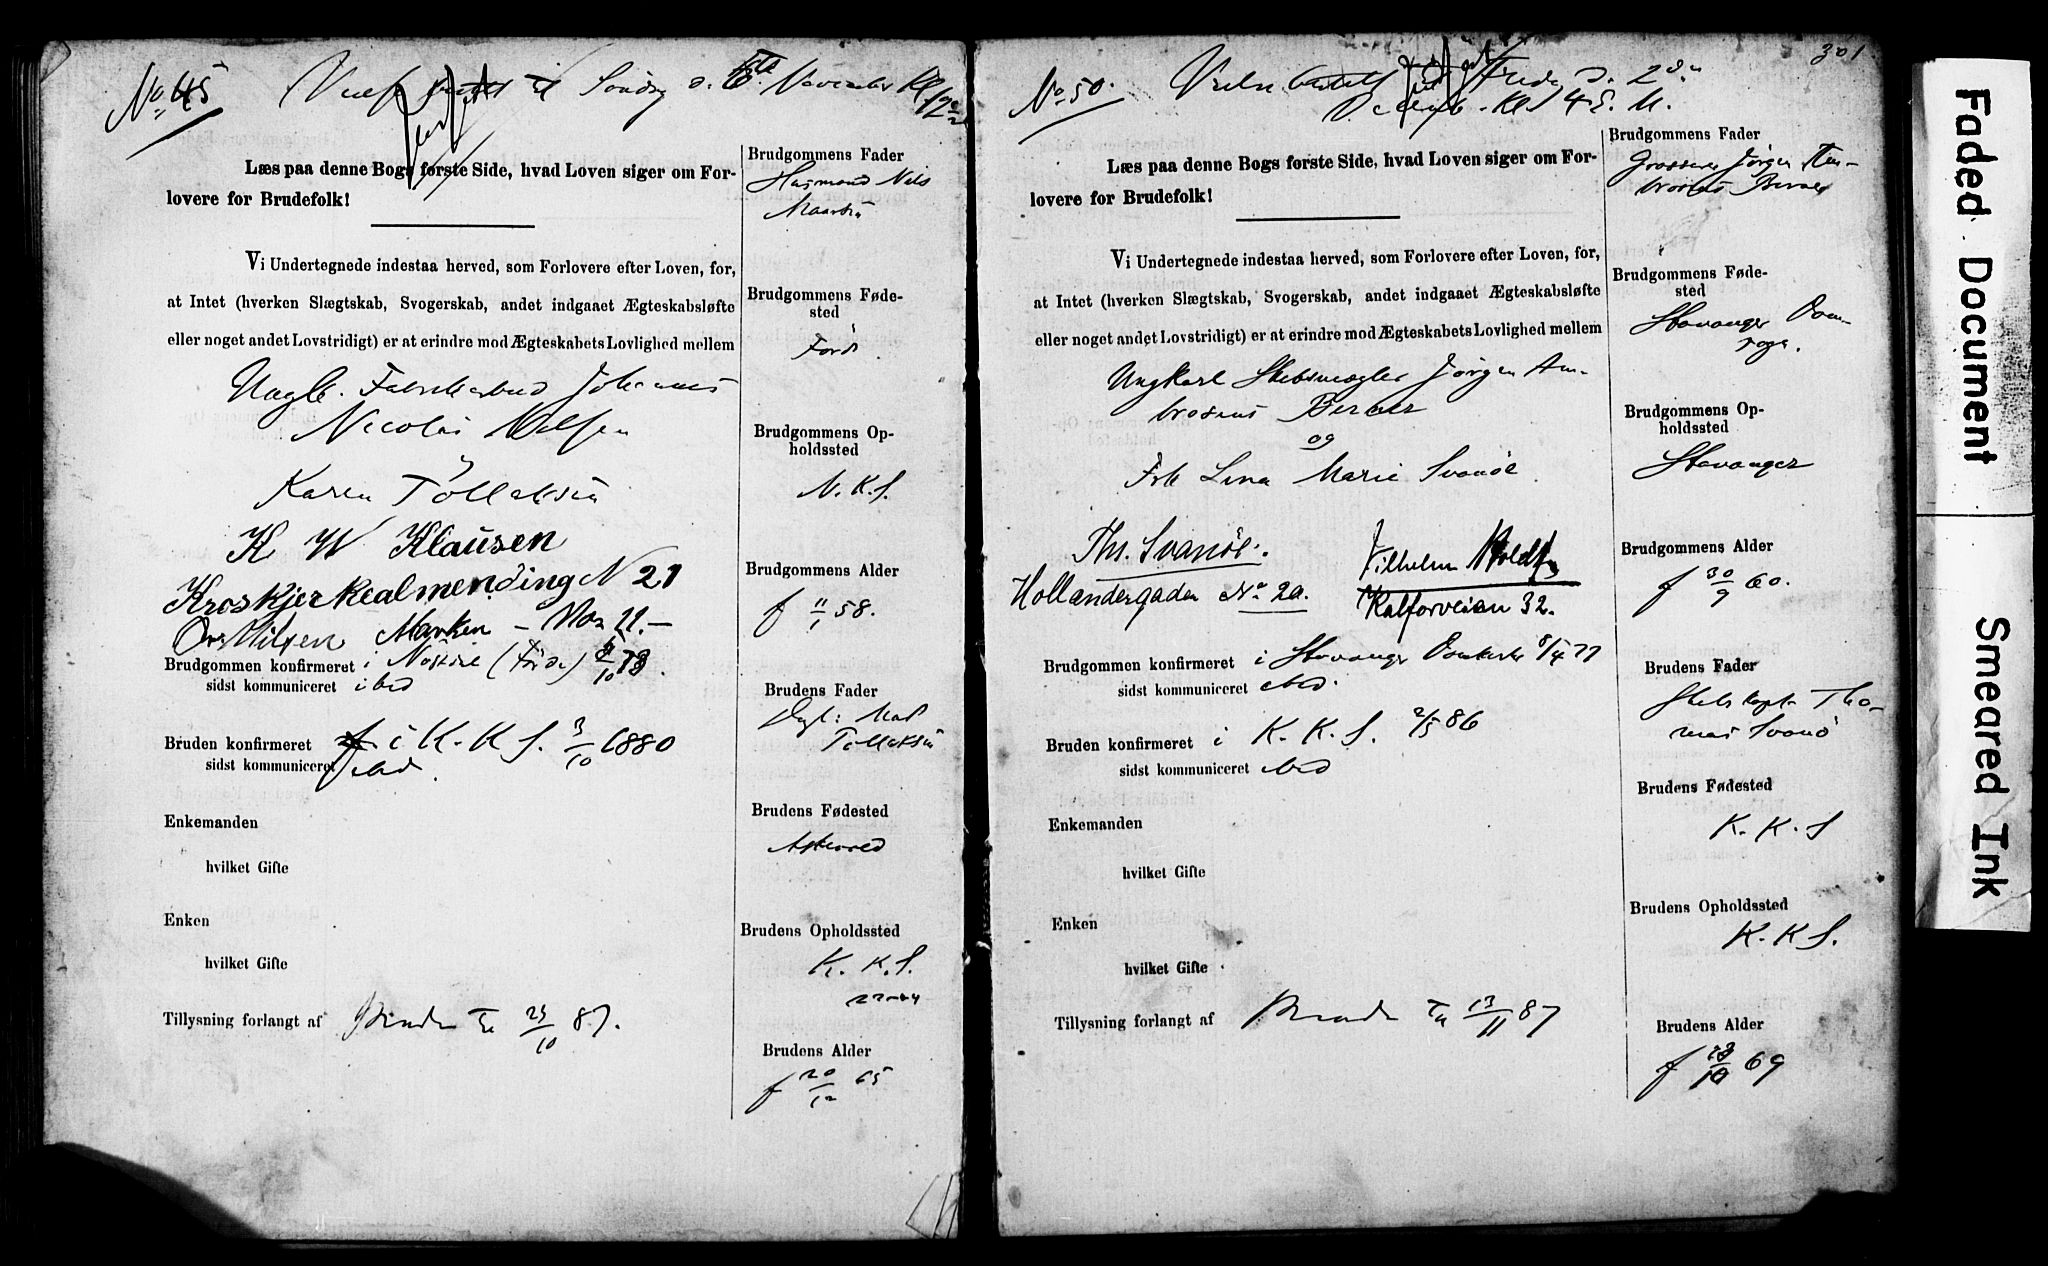 No 45
Søndag d. 6te November Kl 12
Læs paa denne Bogs første Side, hvad Loven siger om For-
lovere for Brudefolk!
Vi Undertegnede indestaa herved, som Forlovere efter Loven, for,
at Intet (hverken Slægtskab, Svogerskab, andet indgaaet Ægteskabsløfte
eller noget andet Lovstridigt) er at erindre mod Ægteskabets Lovlighed mellem
Johannes
Nicolai Nilsen
Karen Tollaksen
K W Klausen
Kroskjerkealmending N 21
Nilsen Marken - No 22.-
Brudgommen konfirmeret i (Førde) 10 73.
sidst kommuniceret ibid
Bruden konfirmeret i K. K. S. 3/10 1880
sidst kommuniceret ibid.
Enkemanden
hvilket Gifte
Enken
hvilket Gifte
Tillysning forlangt af 87.
Brudgommens Fader
Husmand Nils
Brudgommens Føde-
sted
Førde.
Brudgommens Op-
holdssted
N. K. S.
Brudgommens Alder
f 11/1 58.
Brudens Fader
Tollaksen
Brudens Fødested
Askevold
Brudens Opholdssted
K. K. S.
Brudens Alder
f 20/12 65
301.
No 50. Vielse bestilt Fredag d. 2den
Decemb. Kl 4 E. M.
Læs paa denne Bogs første Side, hvad Loven siger om For-
lovere for Brudefolk!
Vi Undertegnede indestaa herved, som Forlovere efter Loven, for,
at Intet (hverken Slægtskab, Svogerskab, andet indgaaet Ægteskabsløfte
eller noget andet Lovstridigt) er at erindre mod Ægteskabets Lovlighed mellem
Ungkarl Skibsmægler Jørgen Am-
brosius Berner
og
Frk Lina Marie Svanøe
Ths. Svanöe. Vilhelm
Hollændergaden No 20. Kalfarveien 32.
Brudgommen konfirmeret i Stavanger Domkirke 8/4 77
sidst kommuniceret ibid.
Bruden konfirmeret i K. K. S. 2/5 86
sidst kommuniceret ibid
Enkemanden
hvilket Gifte
Enken
hvilket Gifte
Tillysning forlangt af 13/11 87
Brudgommens Fader
Grosserer Jørgen Am-
brosius Berner
Brudgommens Føde-
sted
Stavanger Dom-
sogn.
Brudgommens Op-
holdssted
Stavanger
Brudgommens Alder
f 30/9 60.
Brudens Fader
Skibskapt. Tho-
mas Svanø
Brudens Fødested
K. K. S
Brudens Opholdssted
K. K S.
Brudens Alder
f 69
Faded Document
Smeared Ink